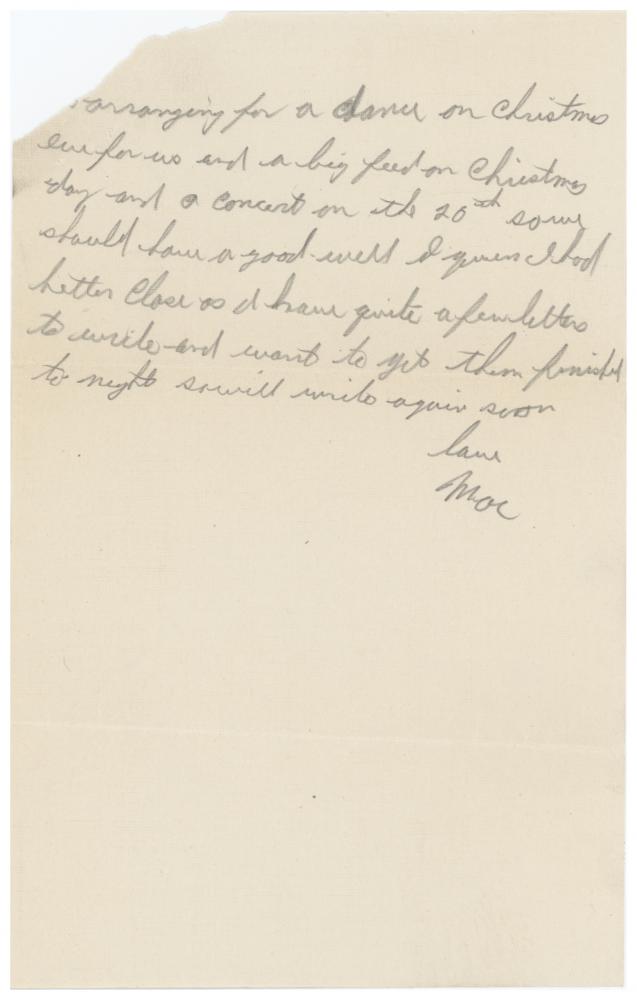 arranging for a dance on Christmas
eve for us and a big feed on Christmas
day and a concert on the 20th so we
should have a good well I guess I had
better close as I have quite a few letters
to write and want to get them finished
to night so will write again soon
Love
Mac